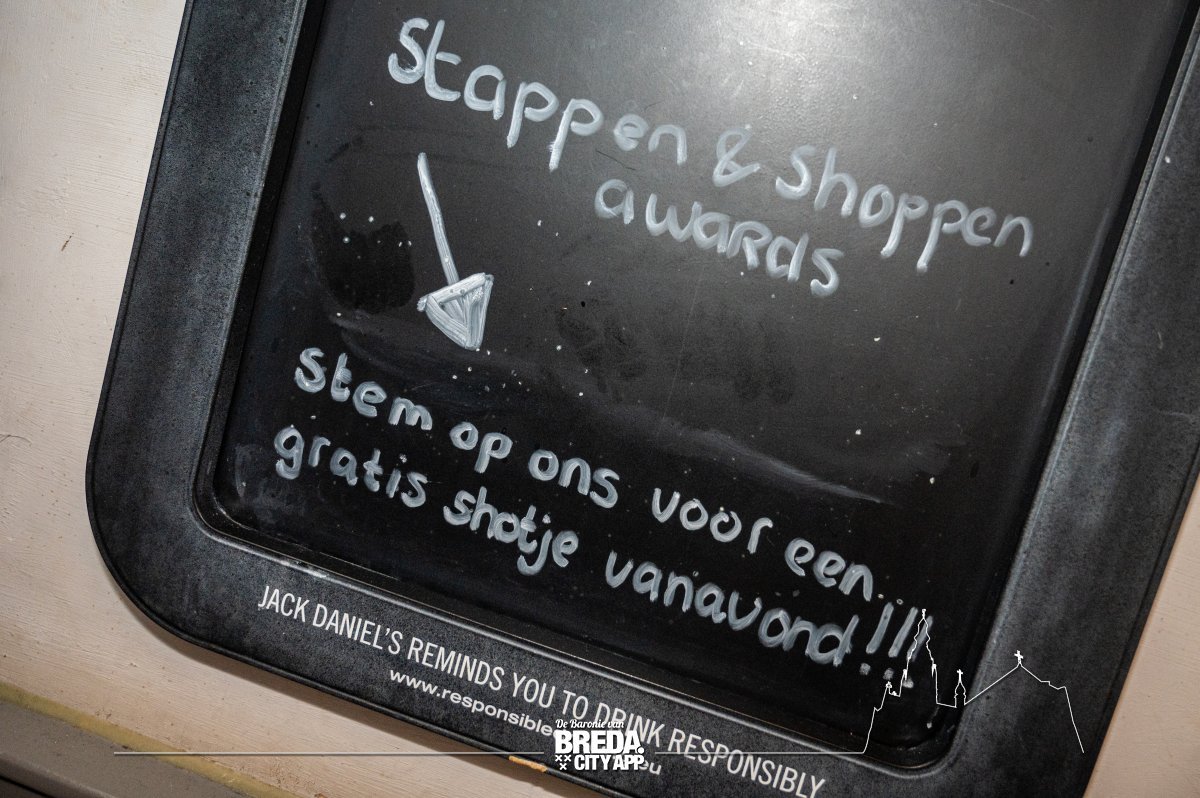 Stappen & Shoppen
awards
Stem op ons voor een
gratis shotje vanavond!!!
JACK DANIEL'S REMINDS YOU TO DRINK RESPONSIBLY
De Baronie van
BREDA.
CITY APP.